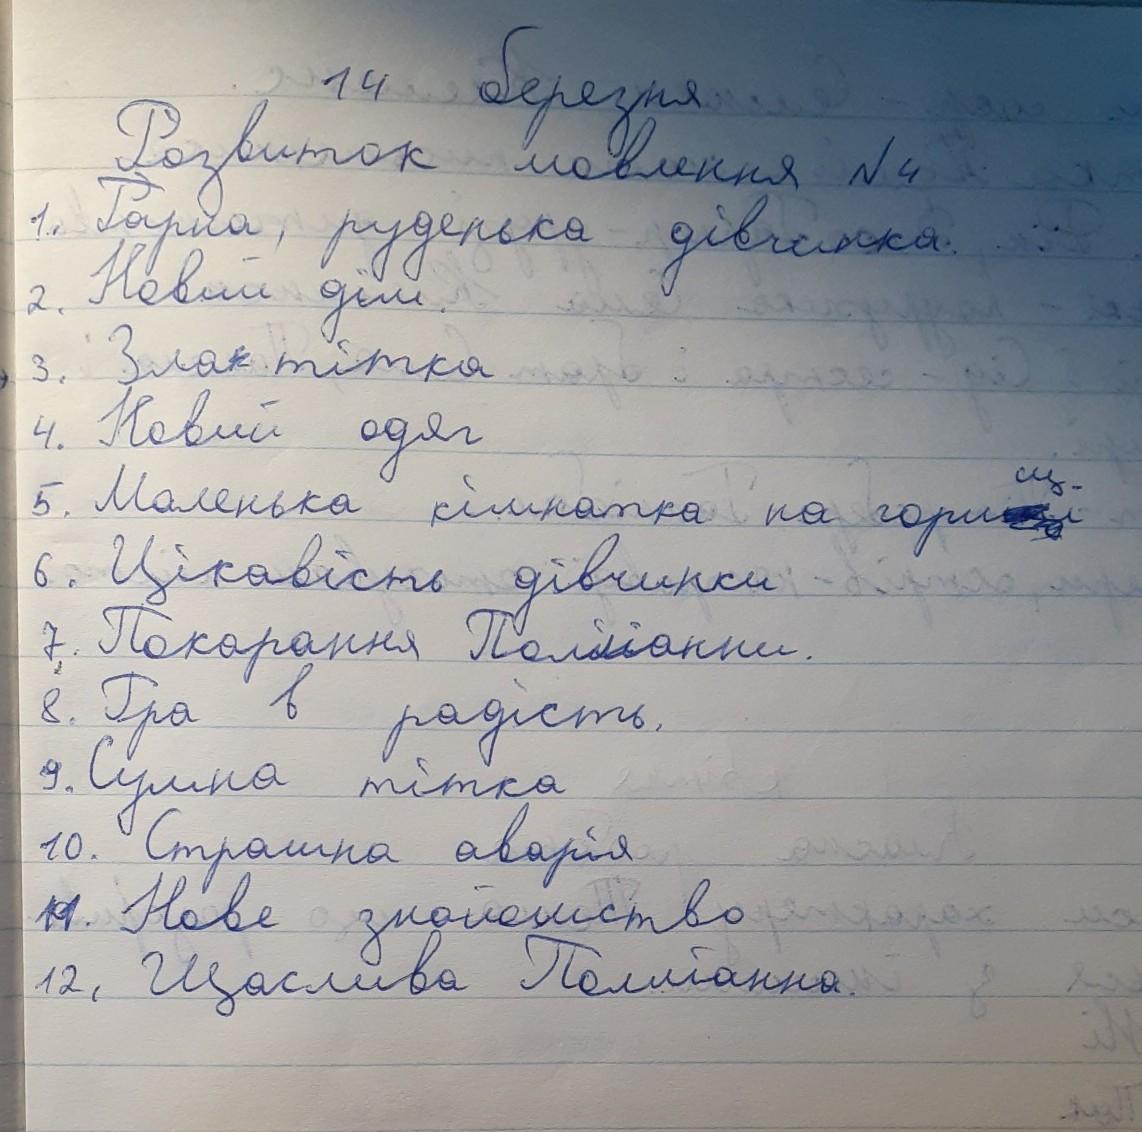 14 березня
Розвиток мовлення №4
1. Гарна, руденька дівчинка.
2. Новий дім.
3. Зла тітка
4. Новий одяг
5. Маленька кімнатка на горищі
6. Цікавість дівчинки
7. Покарання Полліанни.
8. Гра в радість.
9. Сумна тітка
10. Страшна аварія
11. Нове знайомство
12. Щаслива Полліанна.